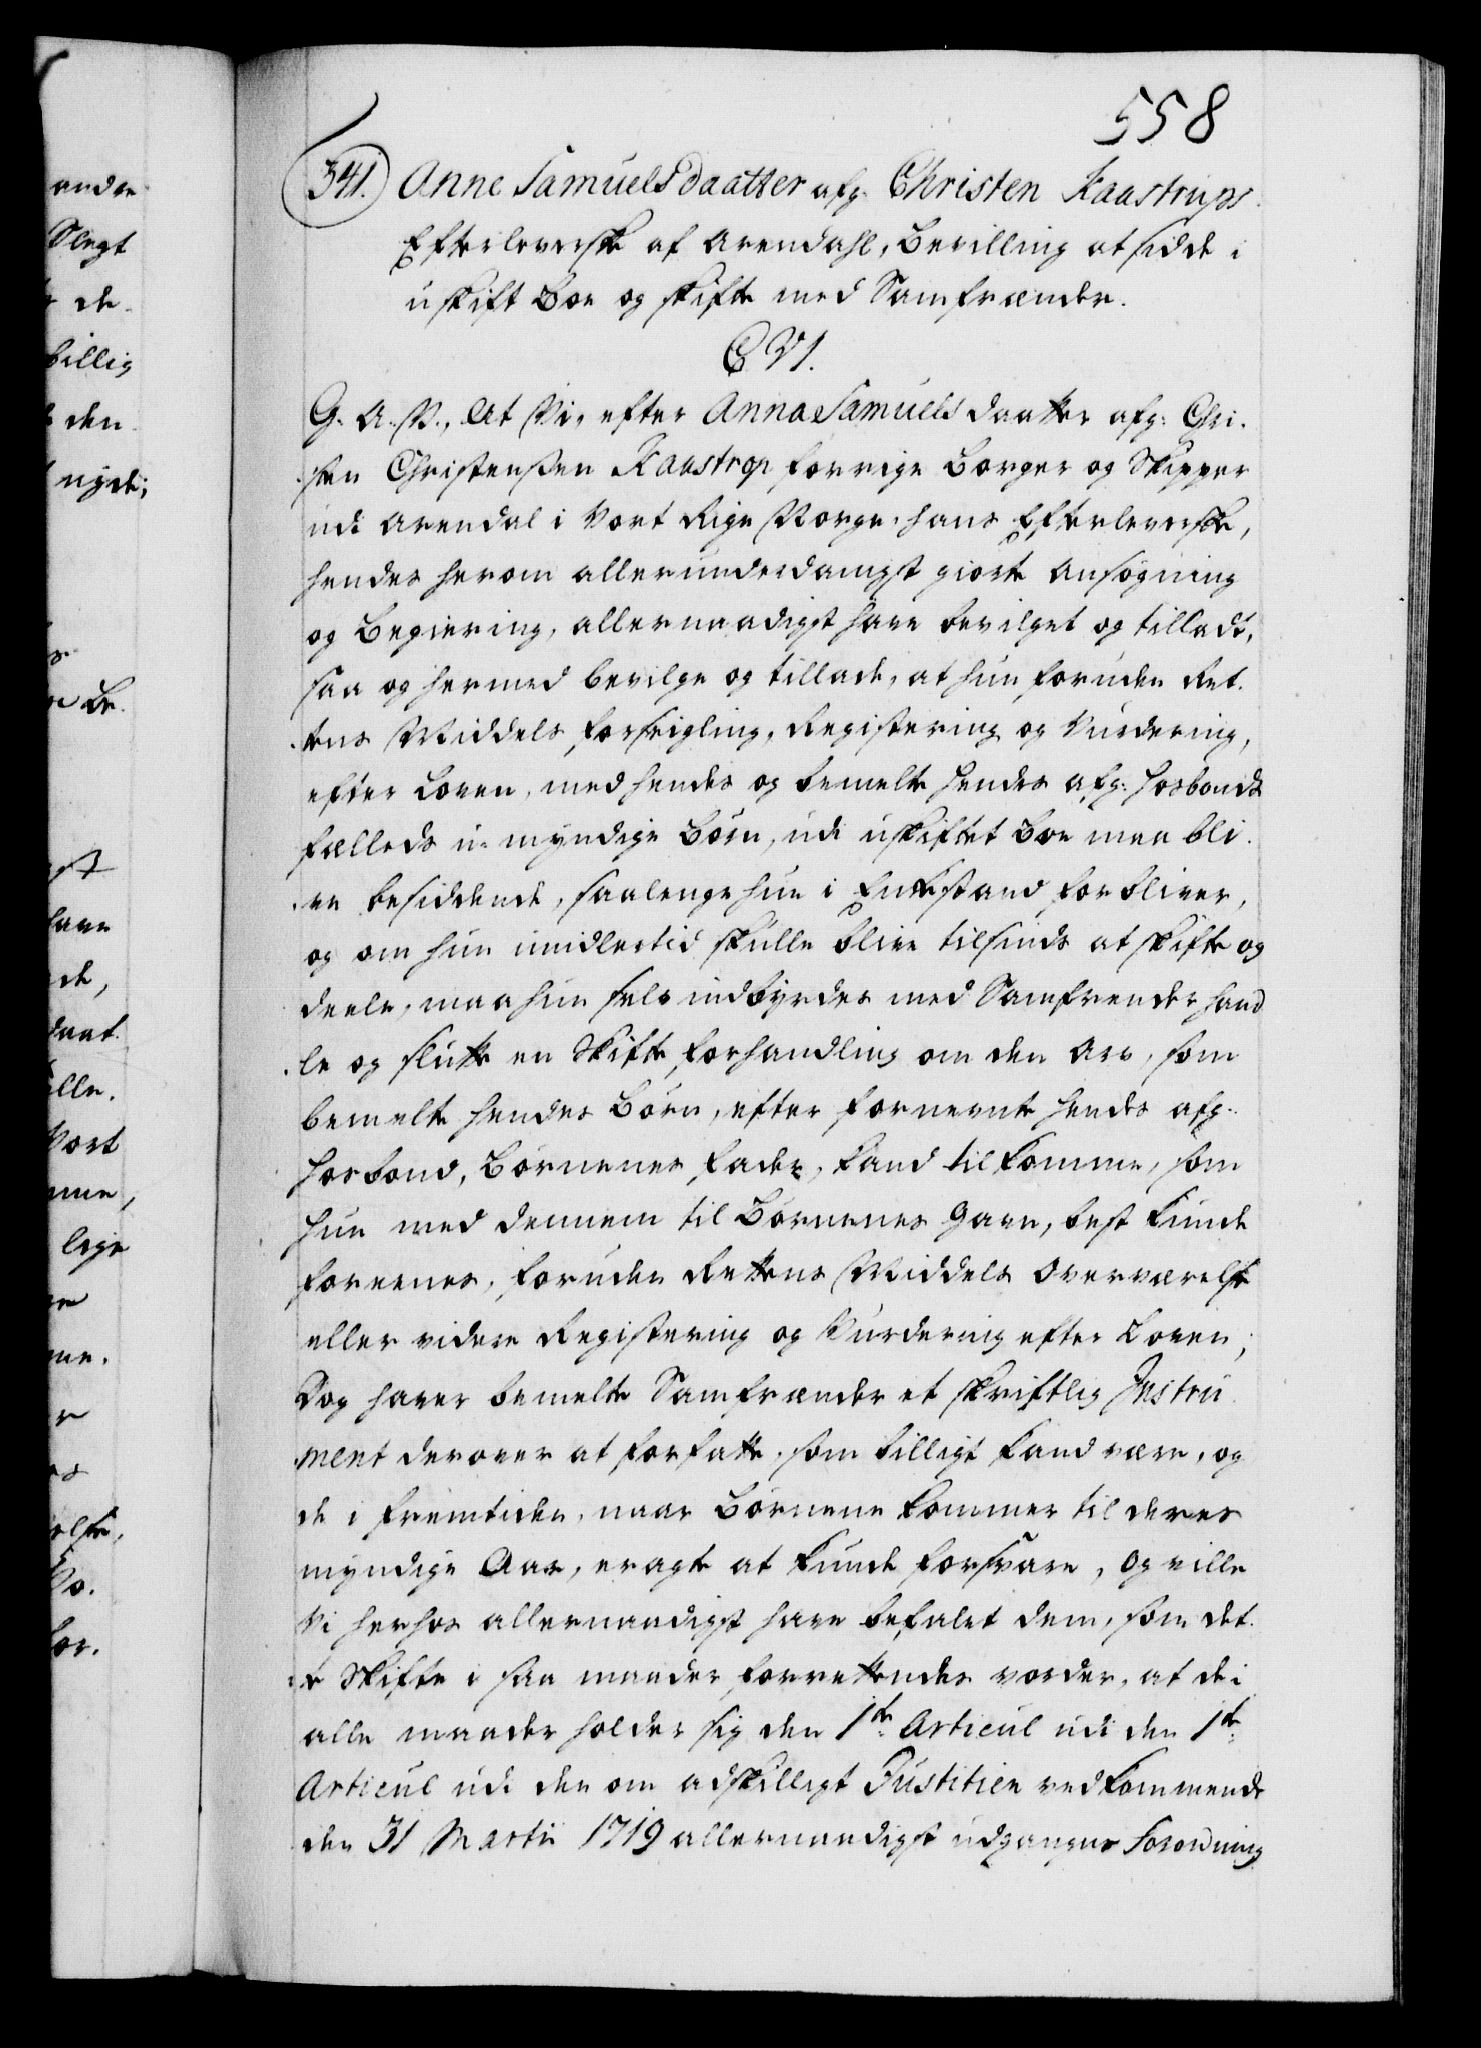 558
341. Anne Samuels daatter afg. Christen Kaastrups
Efterleverske af Arendahl, Bevilling at sidde i
uskift Boe og skifte med Samfrænder.
C VI.
G. A. V., At Vi, efter Anna Samuels daatter afg: Chri-
sten Christensen Kaastrop forrige Borger og Skipper
udi Arendal i Vort Rige Norge, hans Efterleverske,
hendes herom allerunderdanigst giorte Ansøgning
og Begiering, allernaadigst have bevilget og tilladt,
saa og hermed bevilge og tillade, at hun foruden Ret-
tens Middels Forseigling, Registering og Vurdering,
efter Loven, med hendes og bemelte hendes afg: Hosbonds
fælleds u-myndige Børn, udi uskiftet Boe maa bli-
ve besiddende, saalenge hun i Enkestand forbliver,
og om hun imidlertid skulle blive tilsinds at skifte og
deele, maa hun selv indbyrdes med Samfrender hand
le og slutte en Skifte forhandling om den Arv, som
bemelte hendes Børn, efter fornevnte hendes afg:
Hosbond, Børnenes Fader, kand tilkomme, som
hun med dennem til Børnenes Gavn, best kunde
foreenes, foruden Rettens Middels Overværelse
eller videre Registering og Vurdering efter Loven;
Dog haver bemelte Samfrænder et skriftlig Instru
ment derover at forfatte, som billigt kand være, og
de i fremtiden, naar Børnene kommer til deres
myndige Aar, eragte at kunde forsvare, og ville
Vi herhos allernaadigst have befalet dem, som det-
te Skifte i saa maader forrettendes vorder, at de i
alle maader holder sig den 1te Articul udi den 1te
Articul udi den om adskilligt Justitien vedkommende
den 31 Martii 1719 allernaadigst udgangne Forordning